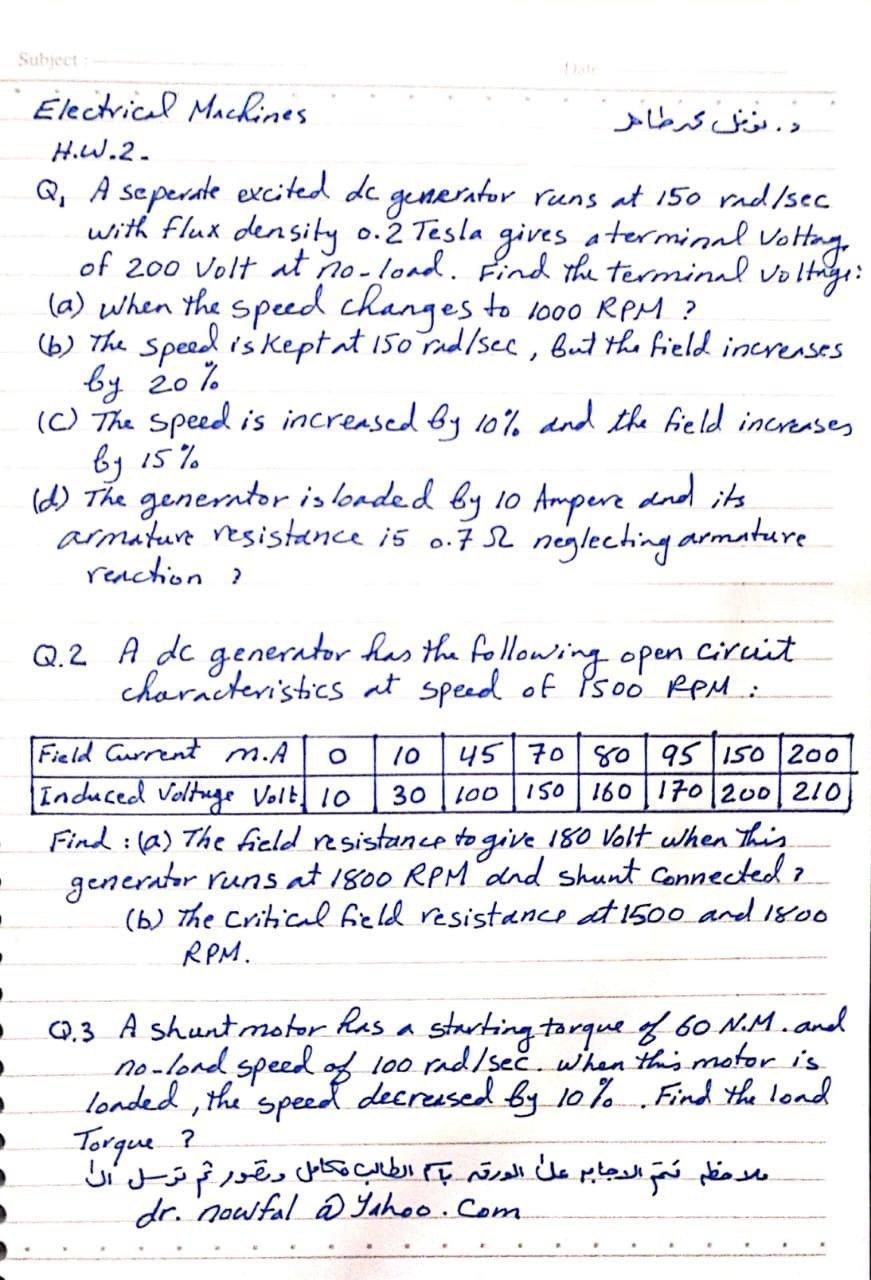 Subject :
Date
Electrical Machines
د. نوفل محمد طاهر
H.W.2-
Q1 A seperate excited dc generator runs at 150 rad/sec
with flux density 0.2 Tesla gives a terminal Voltage
of 200 Volt at no-load. Find the terminal voltage:
(a) when the speed changes to 1000 RPM ?
(b) The speed is kept at 150 rad/sec, but the field increases
by 20 %
(c) The speed is increased by 10% and the field increases
by 15 %
(d) The generator is loaded by 10 Ampere and its
armature resistance is 0.7 Ω neglecting armature
reaction ?
Q.2 A dc generator has the following open circuit
characteristics at speed of 1500 RPM :
Field Current m.A 0 10 45 70 80 95 150 200
Induced Voltage Volt 10 30 100 150 160 170 200 210
Find : (a) The field resistance to give 180 Volt when this
generator runs at 1800 RPM and shunt connected ?
(b) The critical field resistance at 1500 and 1800
RPM.
Q.3 A shunt motor has a starting torque of 60 N.M. and
no-load speed of 100 rad/sec. when this motor is
loaded, the speed decreased by 10 % . Find the load
Torque ?
ملاحظه تتم الاجابه على الورقه بأسم الطالب كامل وتصور ثم ترسل الى
dr. nowfal @ Yahoo . Com